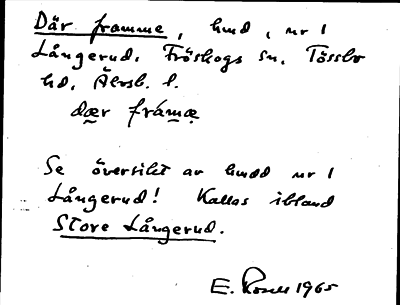 Där framme, hmd, nr 1
Långerud. Fröskogs sn. Tössbo
hd. Älvsb. l.
dær framæ
Se översikt av hmdd nr 1
Långerud! Kallas ibland
Store Långerud.
E. Rosell 1965